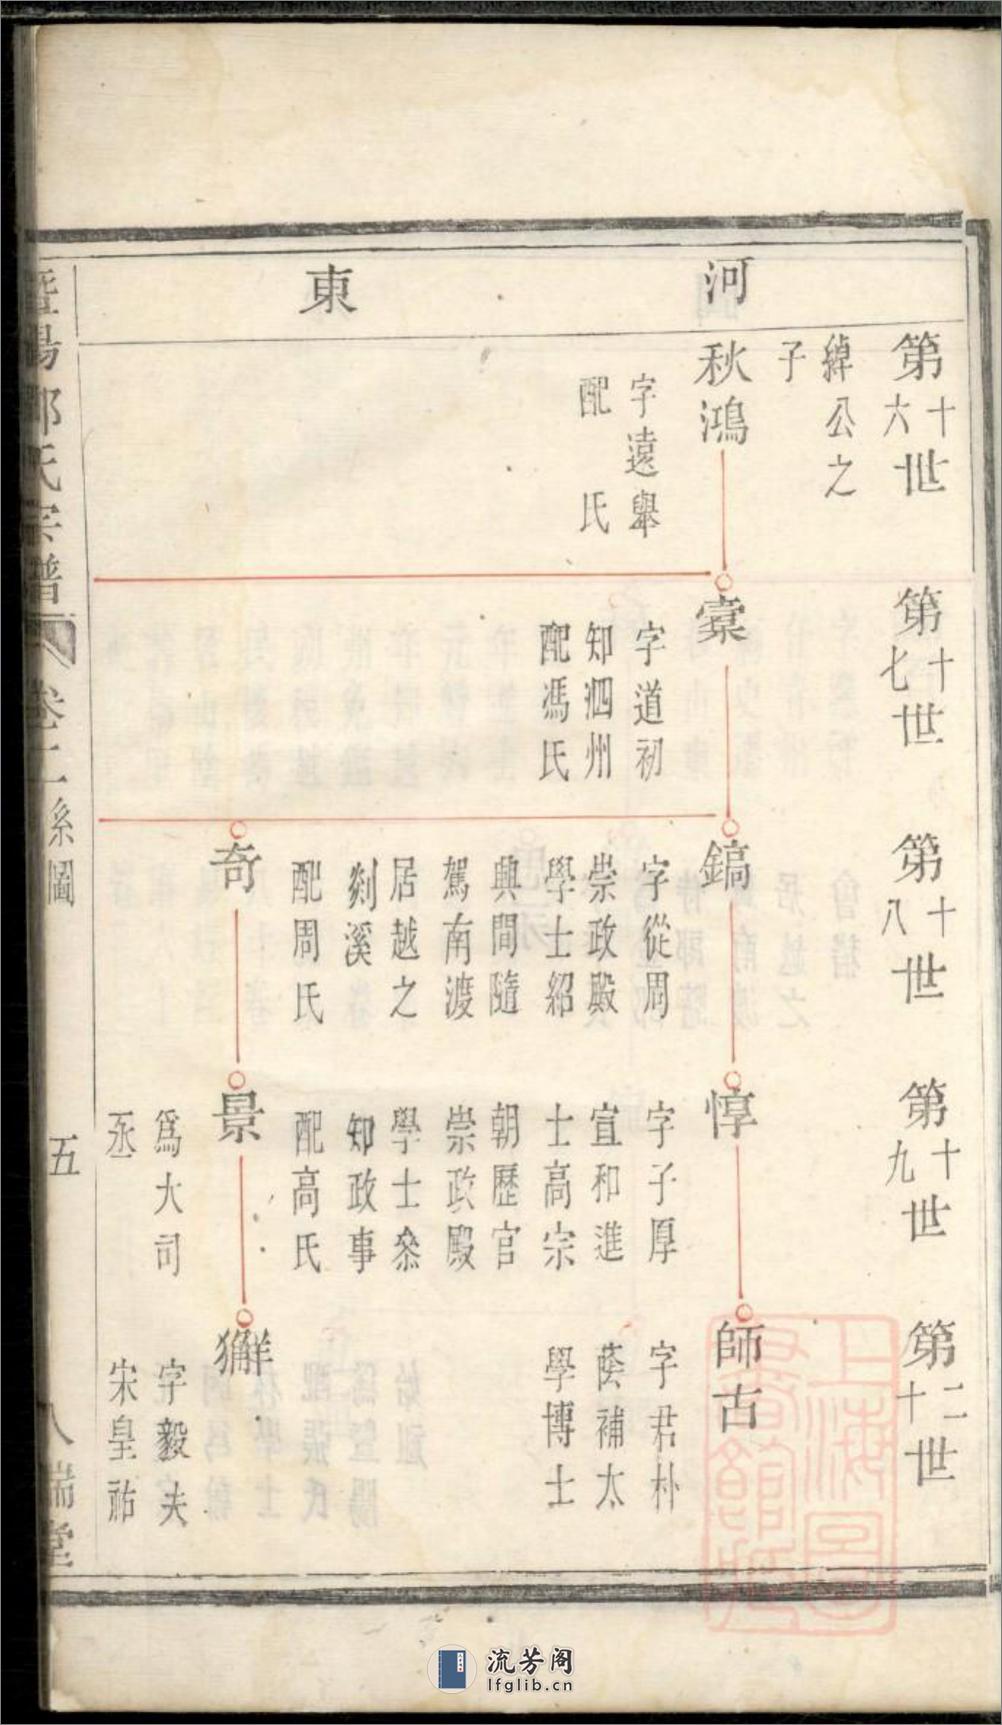 河東
第十六世
綽公之
子
秋鴻
字遠舉
配 氏
第十七世
槖
字道初
知泗州
配馮氏
第十八世
鎬
字從周
崇政殿
學士紹
興間隨
駕南渡
居越之
剡溪
配周氏
奇
第十九世
惇
字子厚
宣和進
士高宗
朝歷官
崇政殿
學士叅
知政事
配高氏
景
爲大司
丞
第二十世
師古
字君朴
蔭補太
學博士
獬
字毅夫
宋皇祐
暨陽 氏宗譜
卷二
系圖
五
八瑞堂
上海圖書館藏
流芳阁
lfglib.cn